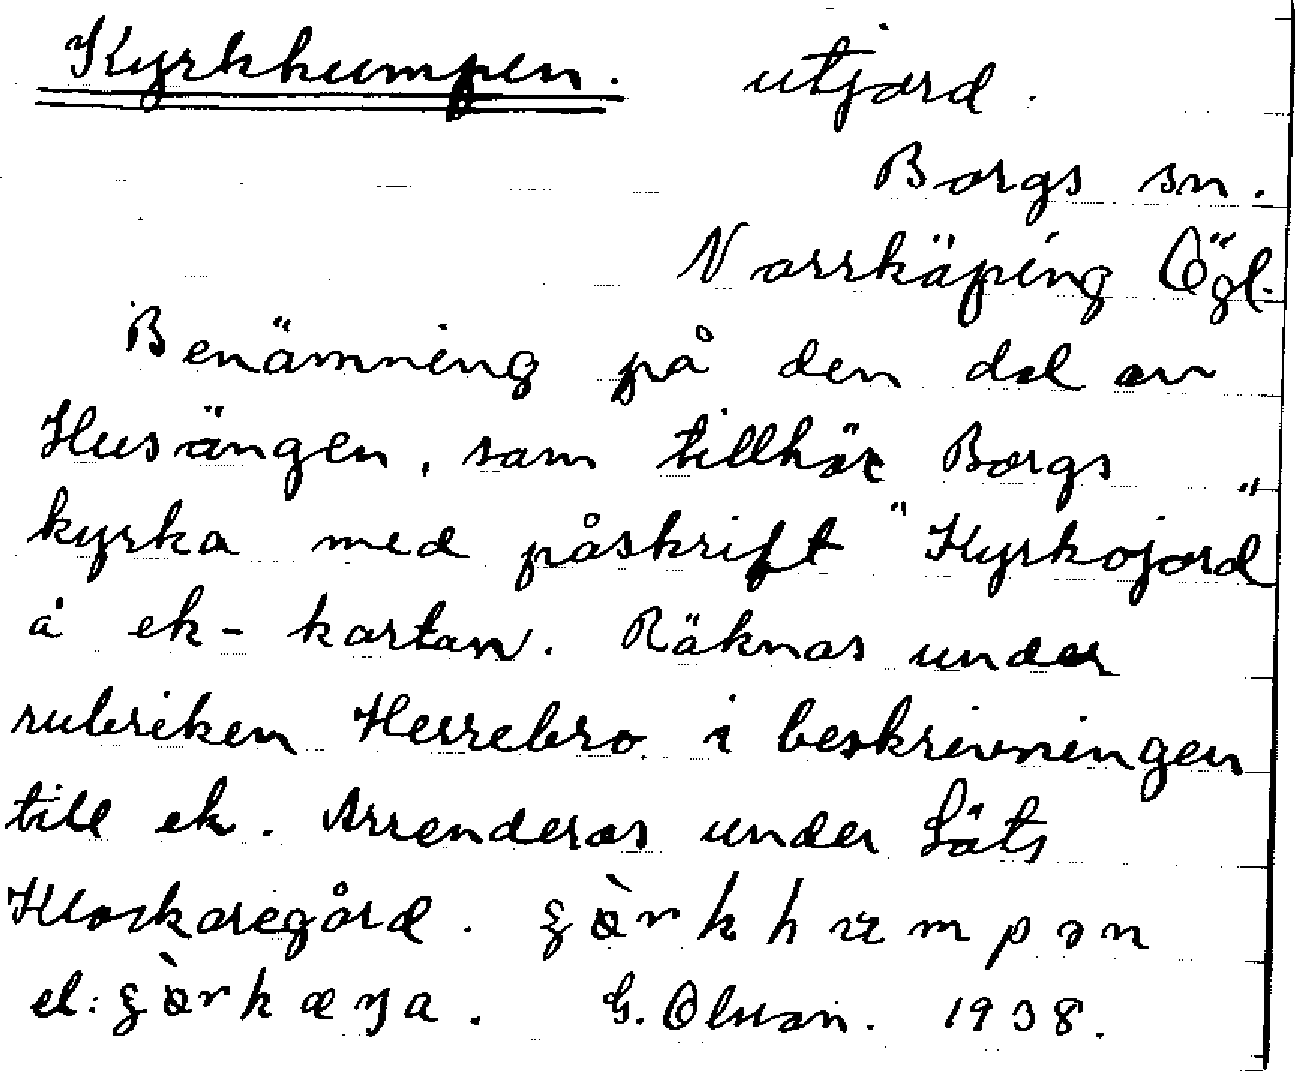 Kyrkhumpen. utjord.
Borgs sn.
Norrköping Ögl.
Benämning på den del av
Husängen, som tillhör Borgs
kyrka med påskrift "Kyrkojord"
å ek-kartan. Räknas under
rubriken Herrebro i beskrivningen
till ek. Arrenderas under Löts
Klockaregård.
el:
G. Olsson. 1938.